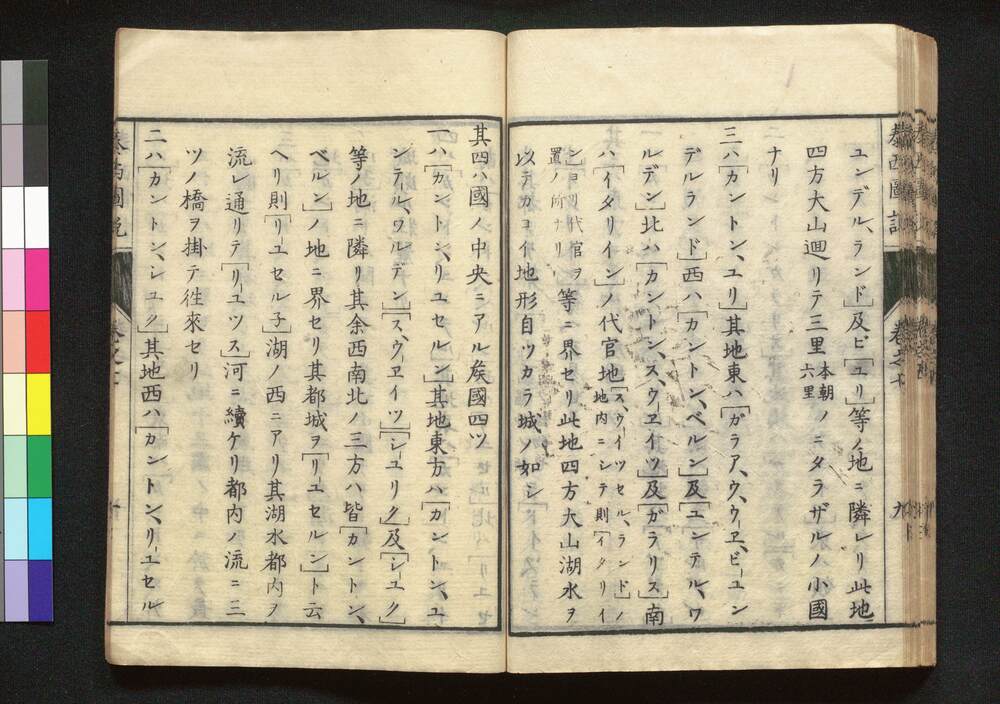 泰西圖説
卷之七
九
ユンデル、ランド]及ビ[ユリ]等ノ地ニ隣レリ此地
四方大山廻リテ三里本朝六里ノニタラザルノ小國
ナリ
三ハカントン、ユリ]其地東ハ[ガラア、ウ、ウヱ、ビーユン
デルランド]西ハ[カントン、ベルン]及[ユンテル、ワ
ルデン]北ハ[カントン、ス、ウヱイツ]及[ガラリス]南
ハ[イタリイン]ノ代官地[ス、ウイツセル、ランド]ノ地内ニシテ則[イタリイ
ン]ヨリ代官ヲ置ノ所ナリ等ニ界セリ此地四方大山湖水ヲ
以テカコイ地形自ツカラ城ノ如シ
其四ハ國ノ中央ニアル矦國四ツ
一ハ[カントン、リユセルン]其地東方ハ[カントン、ユ
ンテル、ワルデン][ス、ウヱイツ][シユリク]及[シユク]
等ノ地ニ隣リ其余西南北ノ三方ハ皆[カントン、
ベルン]ノ地ニ界セリ其都城ヲ[リユセルン]ト云
ヘリ則[リユセル子]湖ノ西ニアリ其湖水都内ヲ
流レ通リテ[リーユツス]河ニ續ケリ都内ノ流ニ三
ツノ橋ヲ掛テ徃來セリ
二ハ[カントン、シユク]其地西ハ[カントン、リーユセル
卷之七